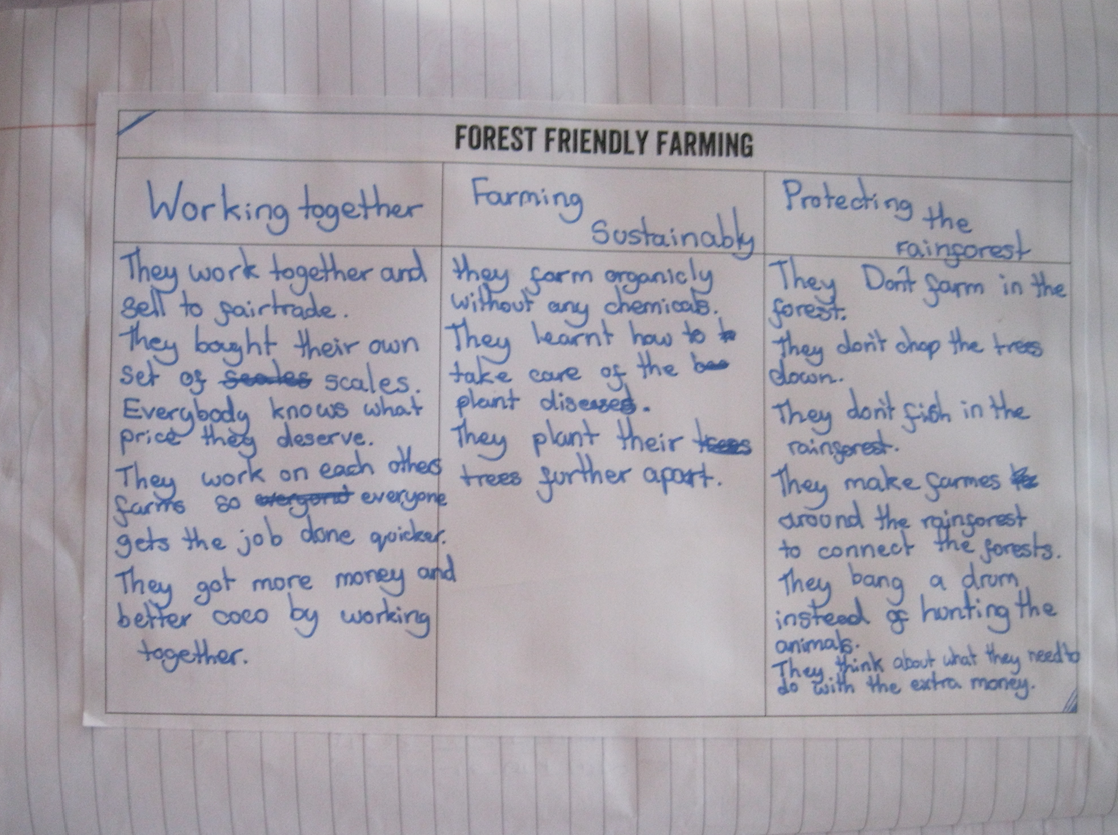 FOREST FRIENDLY FARMING
Working together
They work together and
sell to fairtrade.
They bought their own
set of scales scales.
Everybody knows what
price they deserve.
They work on each others
farms so everyone
gets the job done quicker.
They got more money and
better coco by working
together.
Farming
Sustainably
they farm organicly
without any chemicals.
They learnt how to
take care of the
plant diseases.
They plant their trees
trees further apart.
Protecting
the
rainforest
They Don't farm in the
forest.
They don't chop the trees
down.
They don't fish in the
rainforest.
They make farmes
around the rainforest
to connect the forests.
They bang a drum
instead of hunting the
animals.
They think about what they need to
do with the extra money.